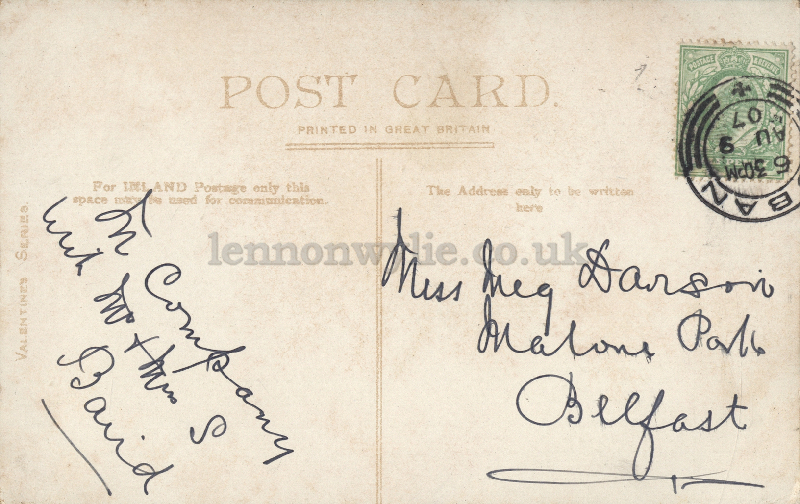 POST CARD.
PRINTED IN GREAT BRITAIN
For INLAND Postage only this
space may be used for communication.
The Address only to be written
here
VALENTINES SERIES.
lennonwylie.co.uk
In Company
with Mr & Mrs S
Baird
Miss Meg Davison
Malone Park
Belfast
POSTAGE & REVENUE
OBAN
6 30PM
AU 9
07